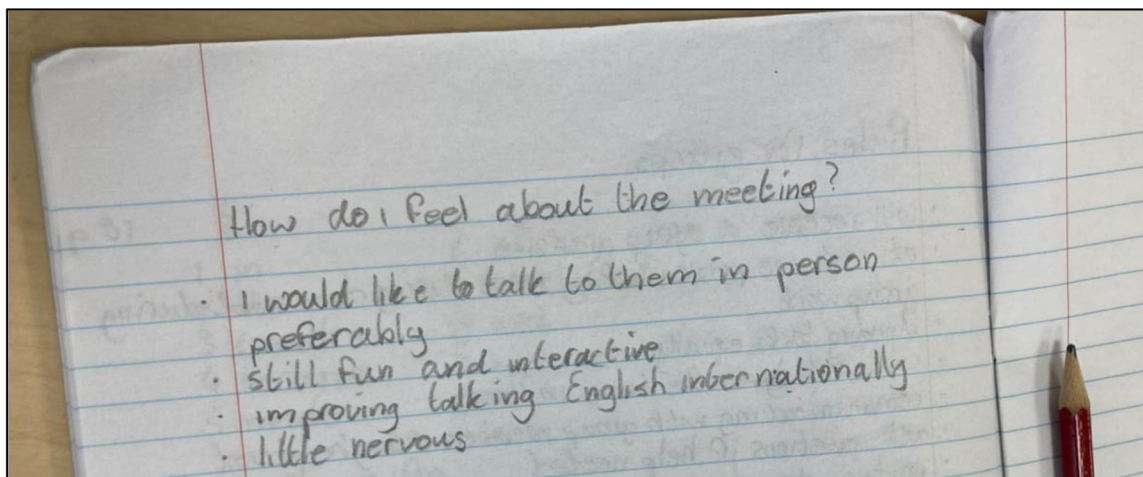 How do i feel about the meeting?
· I would like to talk to them in person
preferably
· still fun and interactive
· improving talking English internationally
· little nervous